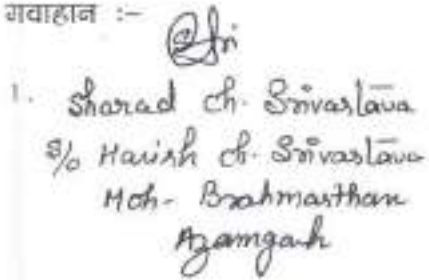 गवाहान :-
1. Sharad ch. Srivastava
S/o Harish ch. Srivastava
Moh- Brahmasthan
Azamgarh